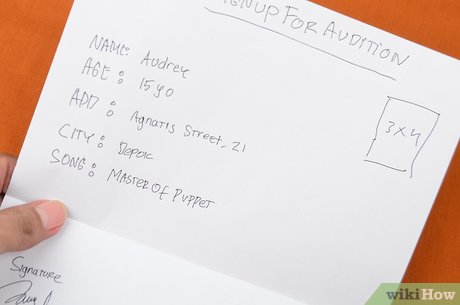 SIGNUP FOR AUDITION
NAME: Audrey
AGE : 15 yo
ADD : Agnatis Street, 21
CITY: Depok
SONG: MASTER OF PUPPET
3X4
Signature
wikiHow